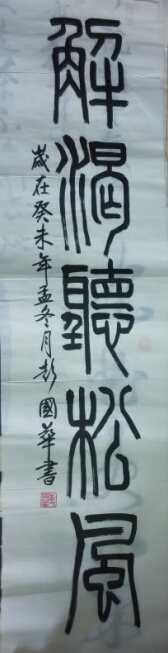 解渴聽松風
歲在癸未年孟冬月彭國華書